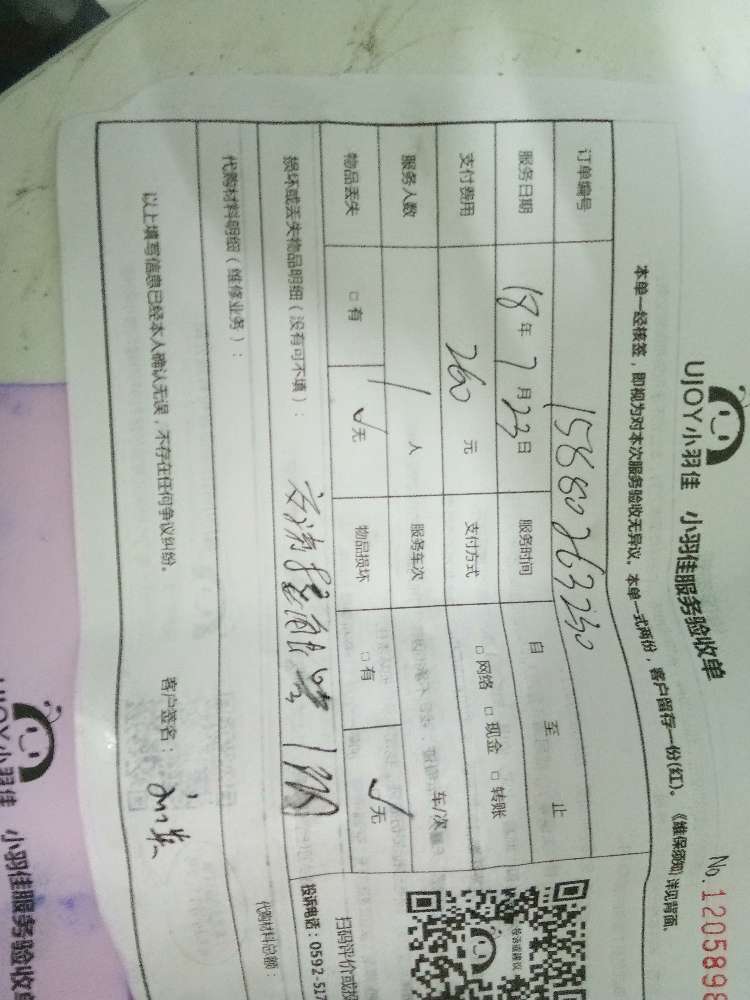 UJOY小羽佳 小羽佳服务验收单
No. 1205898
本单一经核签，即视为对本次服务验收无异议。本单一式两份，客户留存一份(红)。《维保须知》详见背面。
订单编号 15880263230
服务日期 18年7月23日 服务时间 自 至 止
支付费用 260元 支付方式 □网络 □现金 □转账
服务人数 1人 服务车次 车/次
物品丢失 □有 √无 物品损坏 □有 √无
损坏或丢失物品明细（没有可不填）：
代购材料明细（维修业务）：
代购材料总额：
以上填写信息已经本人确认无误，不存在任何争议纠纷。
客户签名：
扫码评价或投
投诉电话：0592-517
UJOY小羽佳 小羽佳服务验收